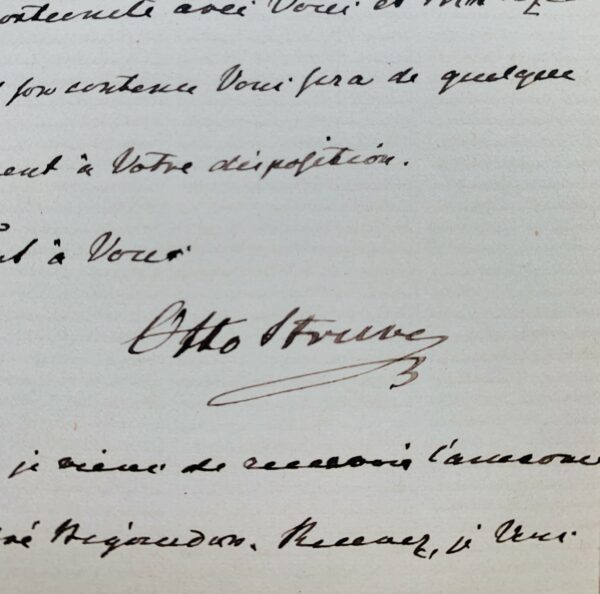 avec Vous et
son contenu Vous sera de quelque
ent à Votre disposition.
à Vous
Otto Struve
je viens de recevoir l'annonce
Bigourdan. Recevez, je Vous